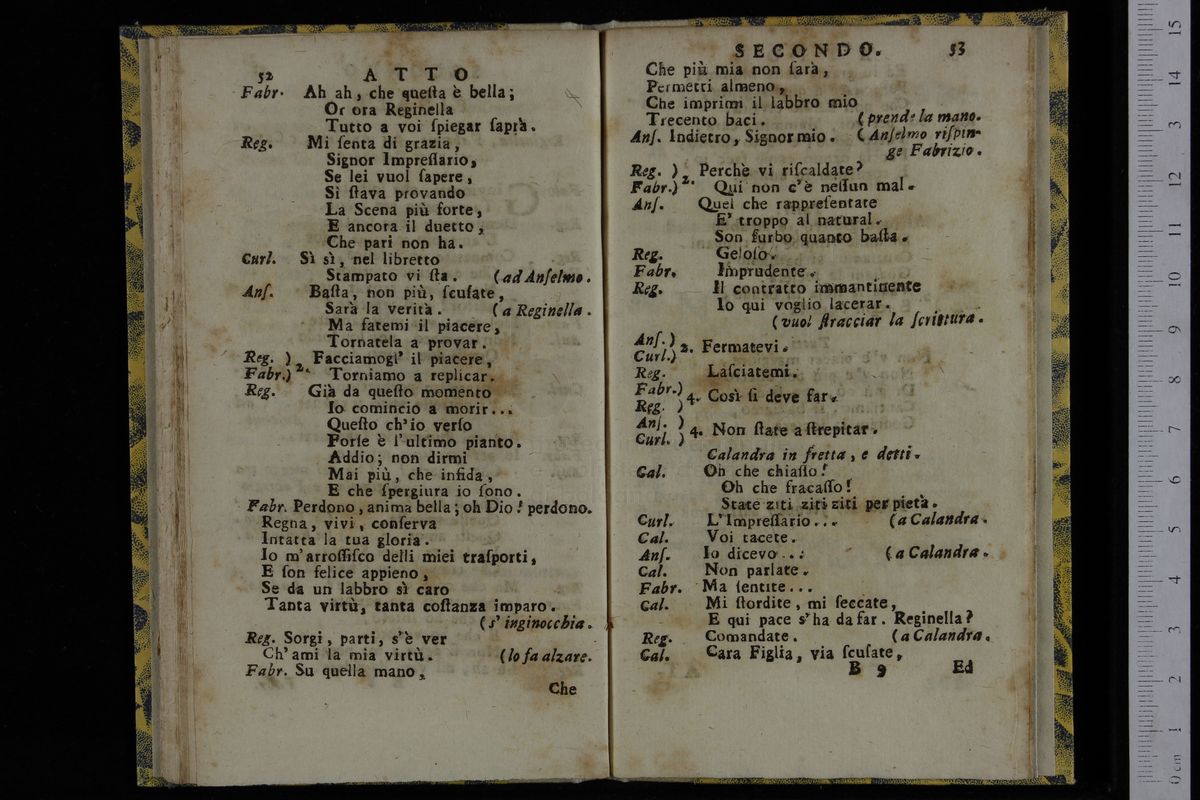 52 ATTO
Fabr. Ah ah, che queſta è bella;
Or ora Reginella
Tutto a voi ſpiegar ſaprà.
Reg. Mi ſenta di grazia,
Signor Impreſſario,
Se lei vuol ſapere,
Si ſtava provando
La Scena più forte,
E ancora il duetto,
Che pari non ha.
Curl. Sì sì, nel libretto
Stampato vi ſta. (ad Anſelmo.
Anſ. Baſta, non più, ſcuſate,
Sarà la verità. (a Reginella.
Ma fatemi il piacere,
Tornatela a provar.
Reg. ) 2. Facciamogl' il piacere,
Fabr.) Torniamo a replicar.
Reg. Già da queſto momento
Io comincio a morir...
Queſto ch'io verſo
Forſe è l'ultimo pianto.
Addio; non dirmi
Mai più, che infida,
E che ſpergiura io ſono.
Fabr. Perdono, anima bella; oh Dio! perdono.
Regna, vivi, conſerva
Intatta la tua gloria.
Io m'arroſſiſco delli miei traſporti,
E ſon felice appieno,
Se da un labbro sì caro
Tanta virtù, tanta coſtanza imparo.
(s' inginocchia.
Reg. Sorgi, parti, s'è ver
Ch'ami la mia virtù. (lo fa alzare.
Fabr. Su quella mano,
Che
SECONDO. 53
Che più mia non ſarà,
Permetti almeno,
Che imprimi il labbro mio
Trecento baci. (prende la mano.
Anſ. Indietro, Signor mio. (Anſelmo riſpin-
ge Fabrizio.
Reg. ) 2. Perchè vi riſcaldate?
Fabr.) Qui non c'è neſſun mal.
Anſ. Quel che rappreſentate
E' troppo al natural.
Son furbo quanto baſta.
Reg. Geloſo.
Fabr. Imprudente.
Reg. Il contratto immantinente
Io qui voglio lacerar.
(vuol ſtracciar la ſcrittura.
Anſ.) 2. Fermatevi.
Curl.)
Reg. Laſciatemi.
Fabr.) 4. Così ſi deve far.
Reg. )
Anſ. ) 4. Non ſtate a ſtrepitar.
Curl. )
Calandra in fretta, e detti.
Cal. Oh che chiaſſo!
Oh che fracaſſo!
State ziti ziti ziti per pietà.
Curl. L'Impreſſario... (a Calandra.
Cal. Voi tacete.
Anſ. Io dicevo... (a Calandra.
Cal. Non parlate.
Fabr. Ma ſentite...
Cal. Mi ſtordite, mi ſeccate,
E qui pace s'ha da far. Reginella?
Reg. Comandate. (a Calandra.
Cal. Cara Figlia, via ſcuſate,
B 9 Ed
0 cm 1 2 3 4 5 6 7 8 9 10 11 12 13 14 15